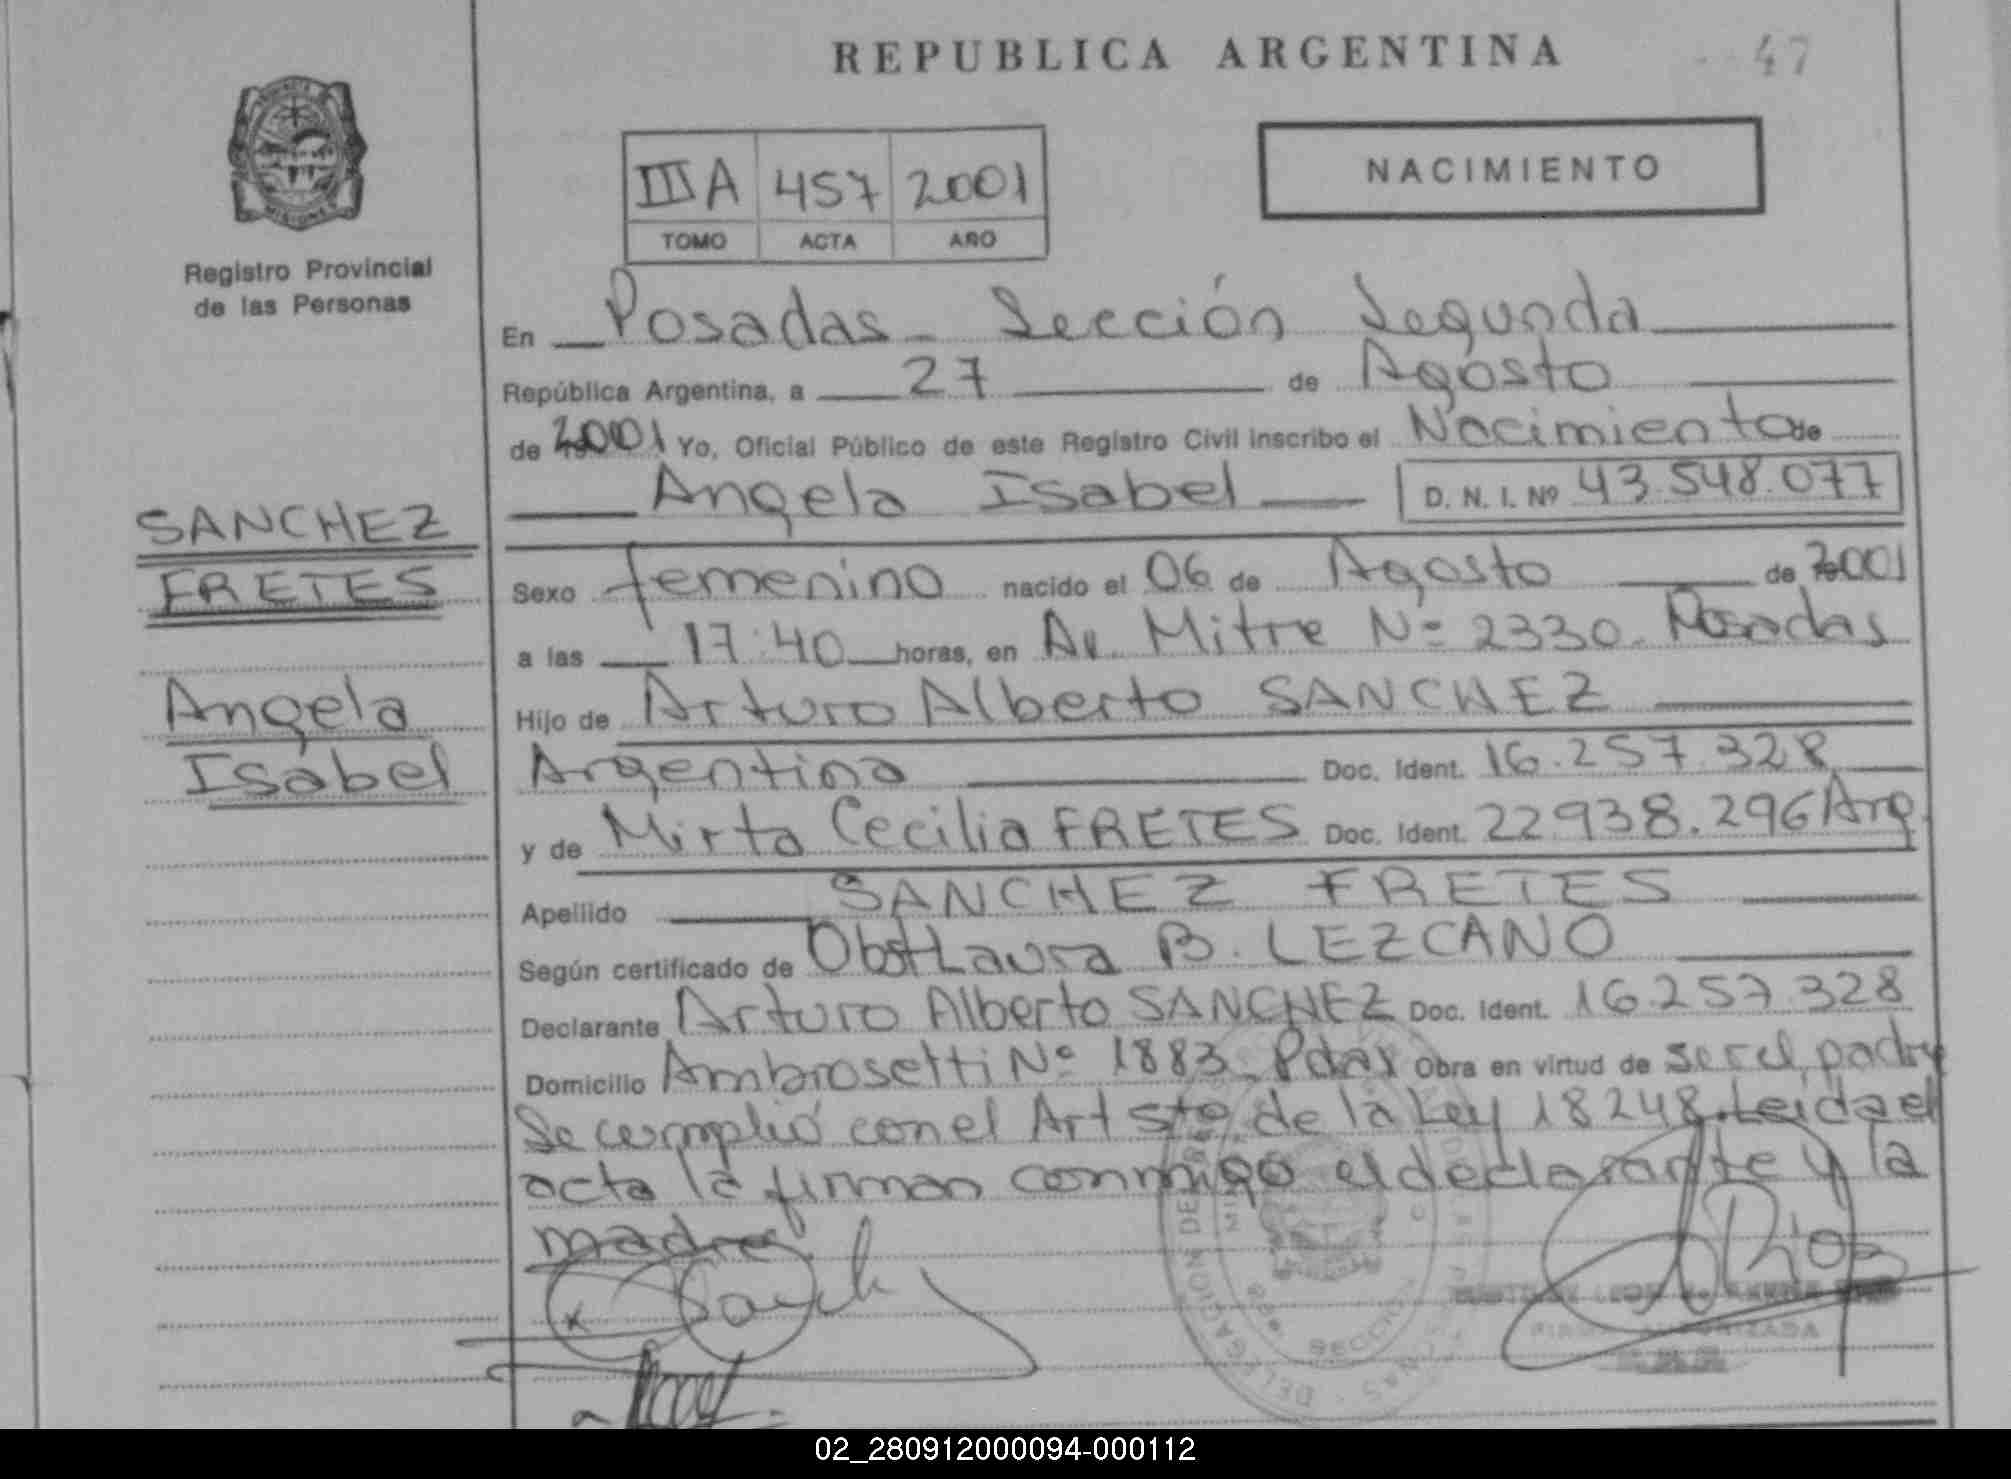 REPUBLICA ARGENTINA
47
MISIONES
Registro Provincial
de las Personas
III A 457 2001
TOMO ACTA AÑO
NACIMIENTO
En Posadas - Sección Segunda
República Argentina, a 27 de Agosto
de 2001 Yo, Oficial Público de este Registro Civil inscribo el Nacimiento de
Angela Isabel D. N. I. Nº 43.548.077
SANCHEZ
FRETES
Angela
Isabel
Sexo femenino nacido el 06 de Agosto de 2001
a las 17:40 horas, en Av. Mitre Nº 2330. Posadas
Hijo de Arturo Alberto SANCHEZ
Argentino Doc. Ident. 16.257.328
y de Mirta Cecilia FRETES Doc. Ident. 22.938.296 Arg.
Apellido SANCHEZ FRETES
Según certificado de Obst Laura B. LEZCANO
Declarante Arturo Alberto SANCHEZ Doc. Ident. 16.257.328
Domicilio Ambrosetti Nº 1883 - Pdas Obra en virtud de ser el padre
Se cumplió con el Art 5to de la Ley 18248. Leida el
acta la firman conmigo el declarante y la
madre.
DELEGACION DE
SECCION
FIRMA AUTORIZADA
02_280912000094-000112